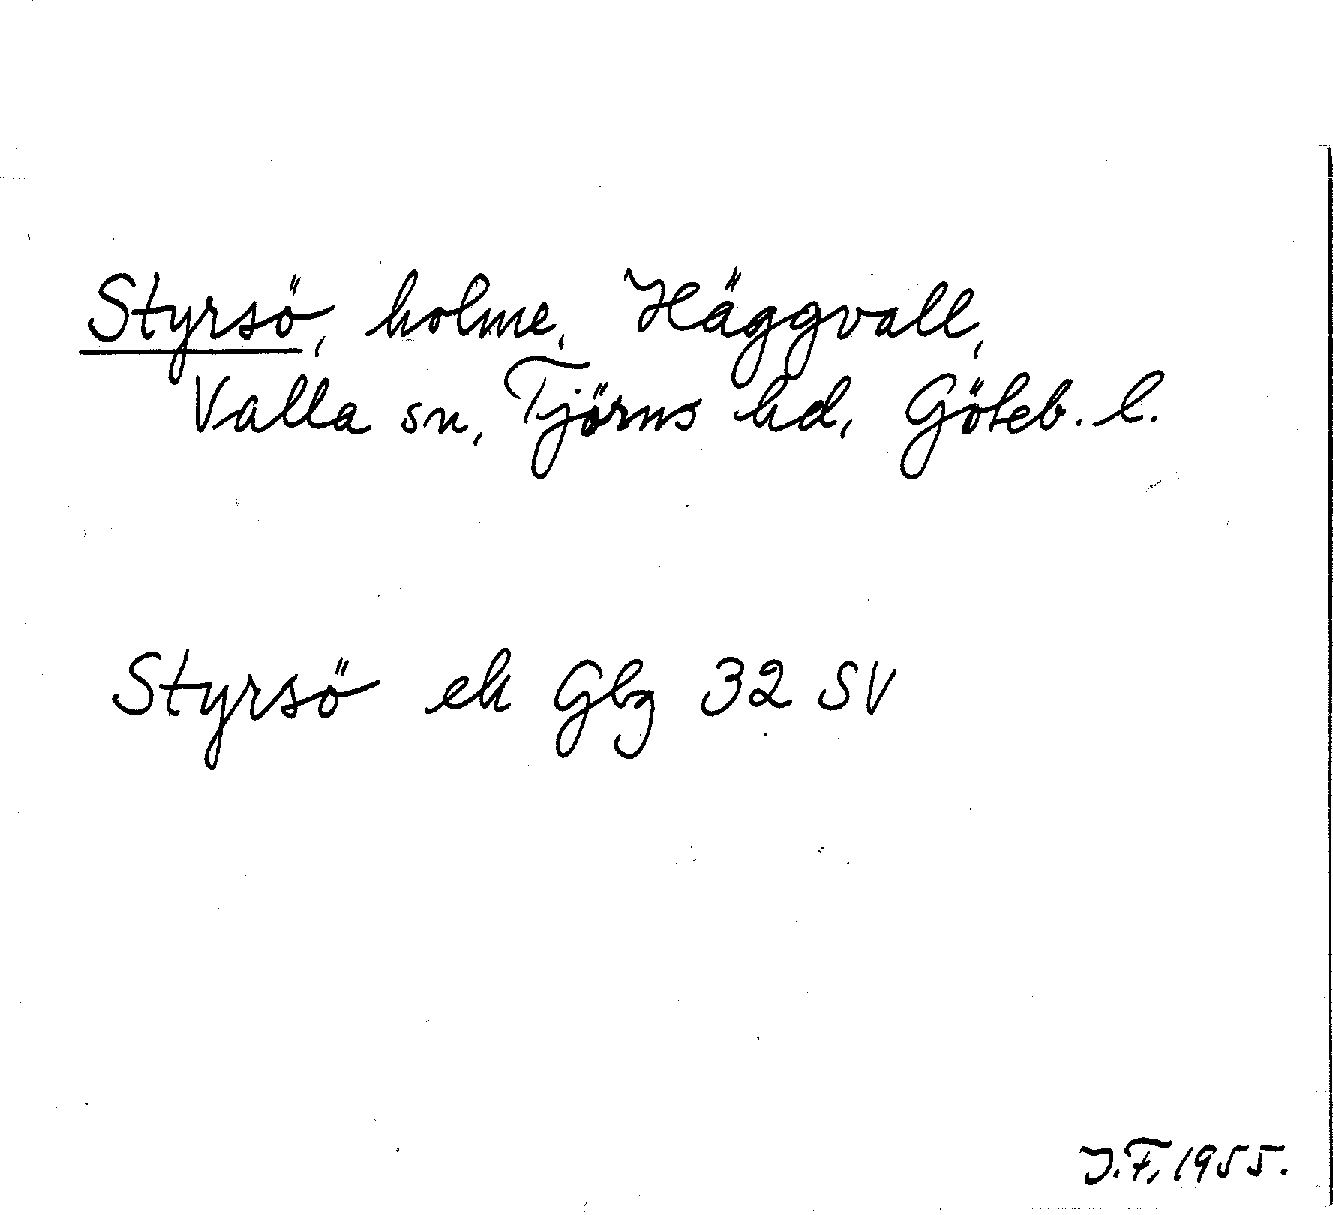 Styrsö, holme, Häggvall,
Valla sn, Tjörns hd, Göteb. l.
Styrsö ek Gbg 32 SV
J.F. 1955.